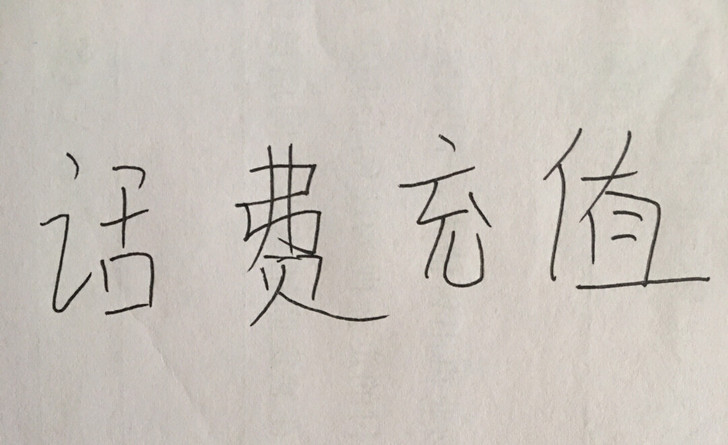 话费充值